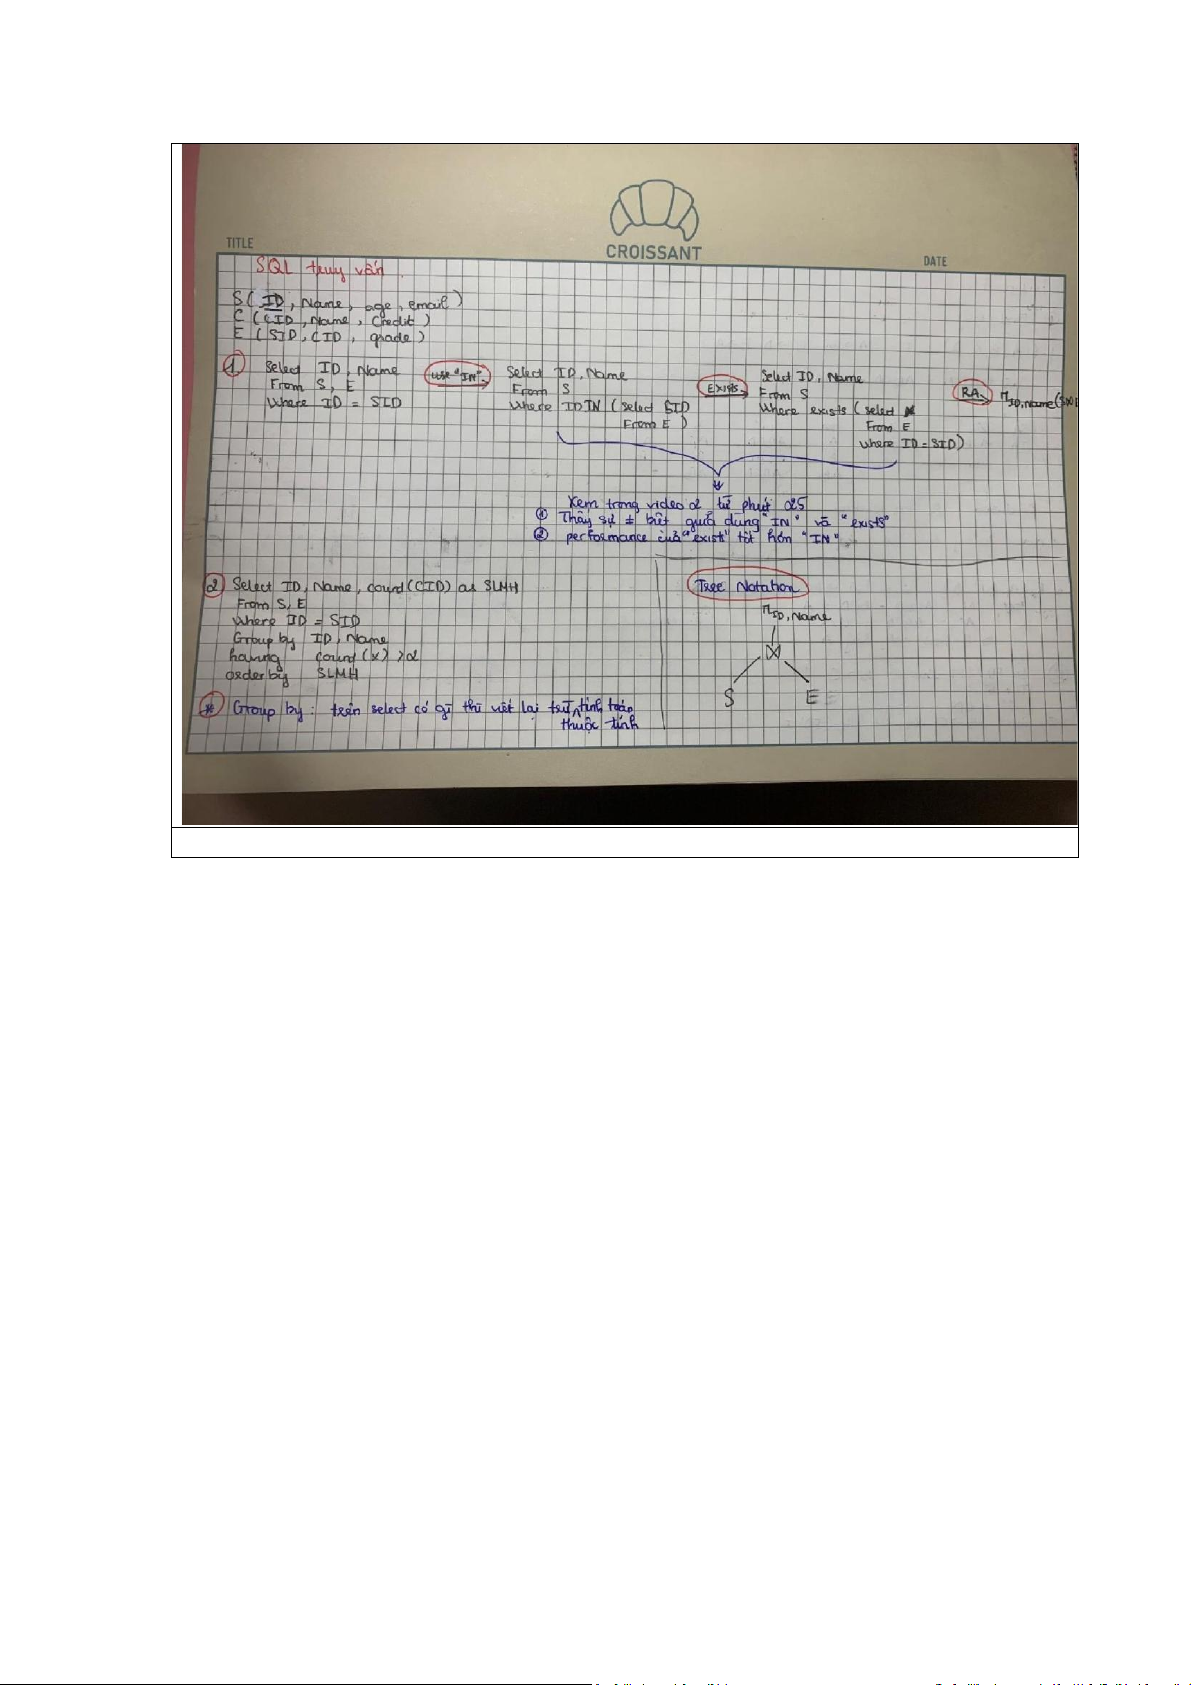 CROISSANT
TITLE
DATE
SQL truy vấn
S ( ID, Name, age, email )
C ( CID, Name, Credit )
E ( SID, CID, grade )
① Select ID, Name
From S, E
Where ID = SID
use "IN"
Select ID, Name
From S
Where ID IN ( select SID
From E )
Exists
Select ID, Name
From S
Where exists ( select *
From E
where ID = SID )
RA
π ID, Name (S⋈
Xem trong video 2 từ phút 25
① Thấy sự ≠ biệt giữa dùng "IN" và "exists"
② performance của "exist" tốt hơn "IN"
② Select ID, Name, count(CID) as SLMH
From S, E
Where ID = SID
Group by ID, Name
having count(*) >2
order by SLMH
* Group by : trên select có gì thì viết lại trừ tính toán
thuộc tính
Tree Notation
π ID, Name
⋈
S E